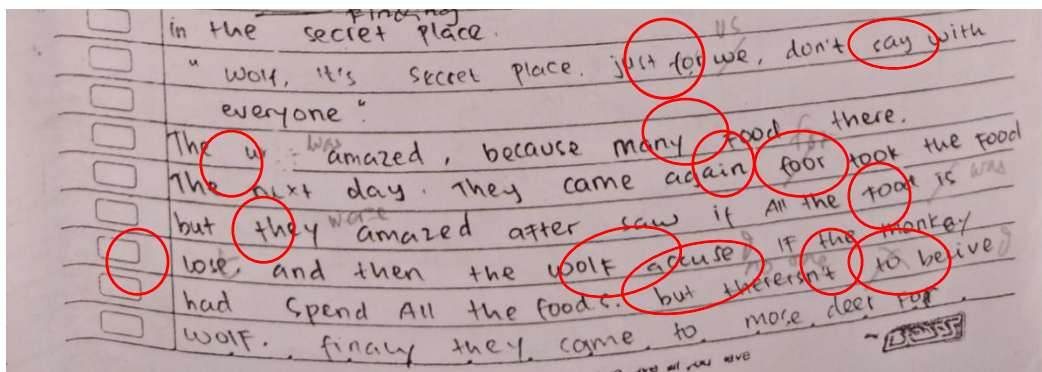 Finding
in the secret place.
us
" Wolf, it's secret place. just for we, don't say with
everyone"
The w was amazed, because many food there.
The next day. They came again foor took the Food
but they were amazed after saw if All the Food is was
lose, and then the wolf accuse IF the monkey
had spend All the foods. but thereisn't to belive
wolf. finaly they came to more deer For